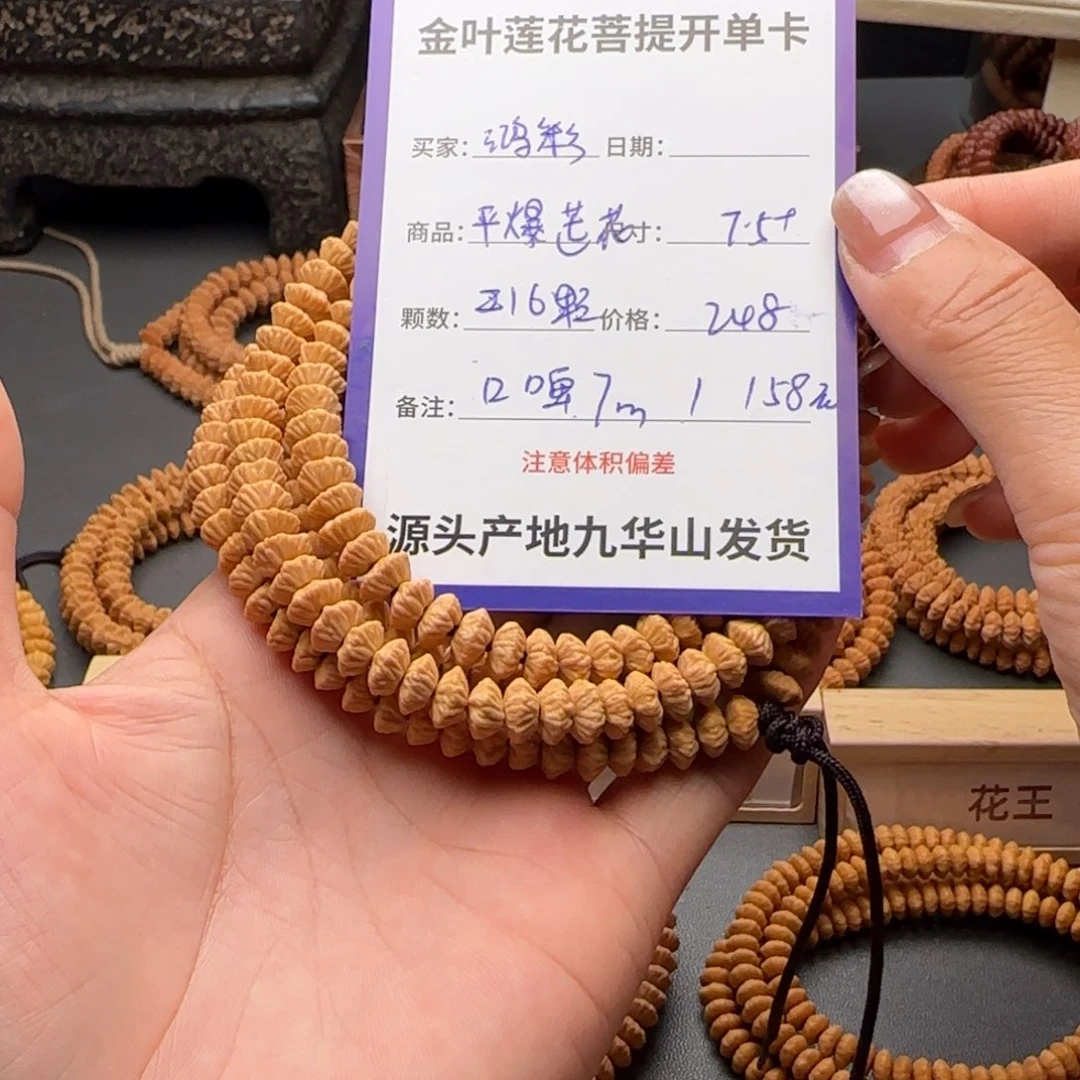 金叶莲花菩提开单卡
买家: 鸿彩 日期:
商品: 平爆莲花 寸: 7.5+
颗数: 216颗 价格: 248
备注: 口 7m 1 158元
注意体积偏差
源头产地九华山发货
花王